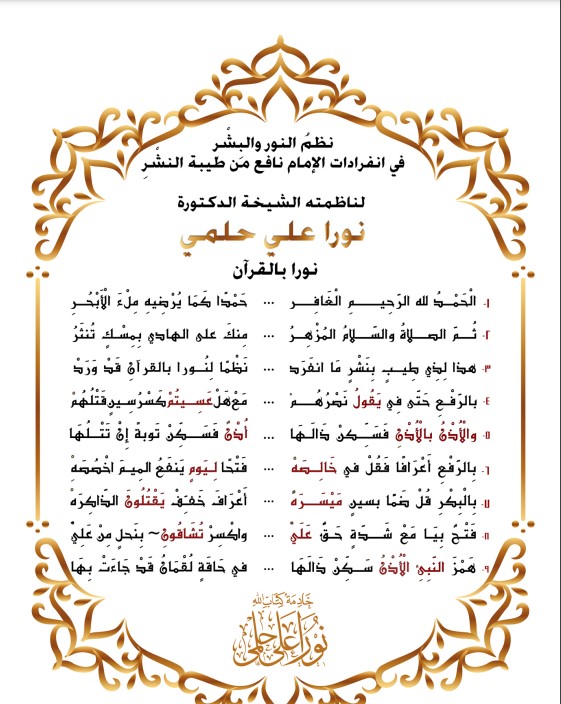 نظمُ النور والبِشْر
في انفرادات الإمام نافع مَن طيبة النشْرِ
لناظمته الشيخة الدكتورة
نورا علي حلمي
نورا بالقرآن
١. الْحَمْـدُ لله الرَحِيـــمِ الْغَافِـرِ ... حَمْدًا كَمَا يُرْضِيهِ مِلْءَ الْأَبْحُـرِ
٢. ثُـمَّ الصلاةُ والسَلَامُ المُزْهِـرُ ... مِنكَ على الهادي بِمِسْكٍ تُنثَرُ
٣. هذا لِذِي طِيبٍ بِنَشْرٍ مَا انفَرَد ... نَظْمًا لِنُـورا بالقرآنِ قَدْ وَرَدْ
٤. بالرَفْعِ حَتَّى فِي يَقُولُ نَصْرُهُـمْ ... مَعْ هَلْ عَسِيتُمْ كَسْرُ سِينٍ قَتْلُهُمْ
٥. والْأُذْنُ بالْأُذْنِ فَسَـكِّـن ذَالَـهَا ... أُذْنٌ فَسَـكِّـنْ تَوبةً إِنْ تَتْـلُـهَا
٦. بِالرَفْعِ أَعْرَافًا فَقُلْ في خَالِصَهْ ... فَتْحًا لِيَومِ يَنفَعُ المِيمَ اخْصُصَهْ
٧. بِالْبِكْرِ قُلْ ضَمًّا بسينِ مَيْسَـرَهْ ... أَعْرَافَ خَفِّفْ يَقْتُلُونَ الذاكِرَهْ
٨. فَتْـحٌ بِيَا مَعْ شَـدَّةٍ حَـقٌّ عَلَيَّ ... واكْسِرْ تُشَاقُّونِ~ بِنَحلٍ مِن عَلِيِّ
٩. هَمْزَ النَبِيءِ الْأُذْنُ سَـكِّنْ ذَالَهَا ... في حَاقَةٍ لُقمَانَ قَدْ جَاءَتْ بِهَا
خَادِمَة كِتَابِ اللهِ
نُورَا عَلِي حِلمِي